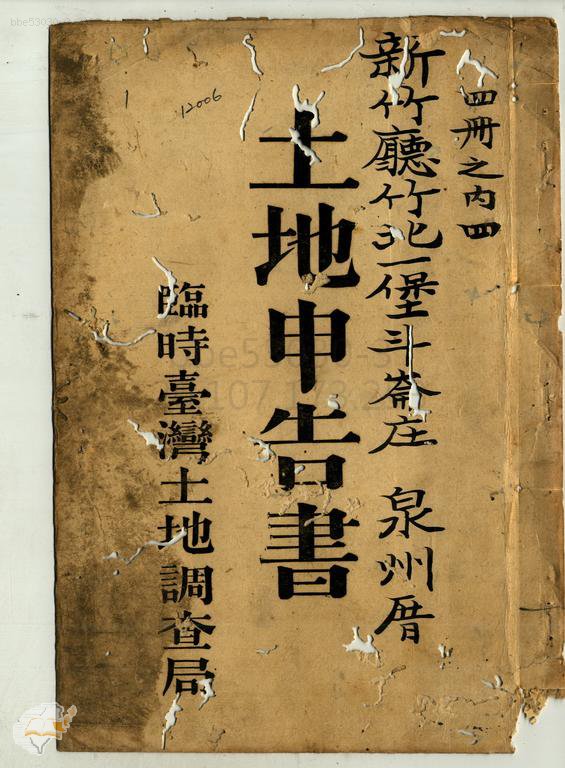 四冊之内四
新竹廳竹北一堡斗崙庄 泉州厝
土地申告書
臨時臺灣土地調查局
12006